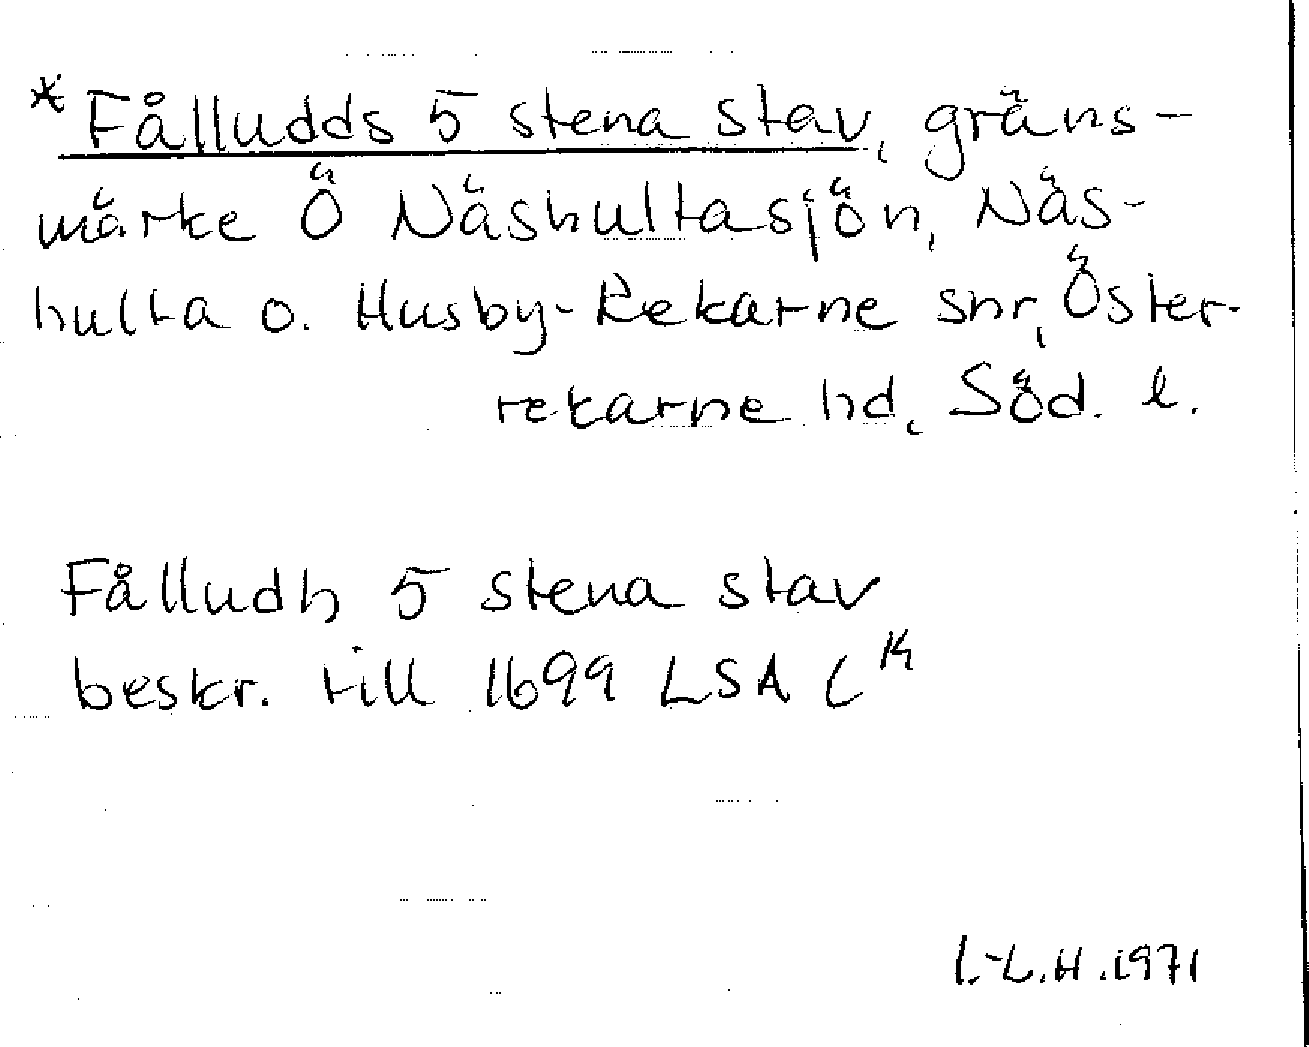 *Fålludds 5 stena stav, gräns-
märke Ö Näshultasjön, Näs-
hulta o. Husby-Rekarne snr, Öster-
rekarne hd, Söd. l.
Fålludh 5 stena stav
beskr. till 1699 LSA C
I.-L.H. 1971